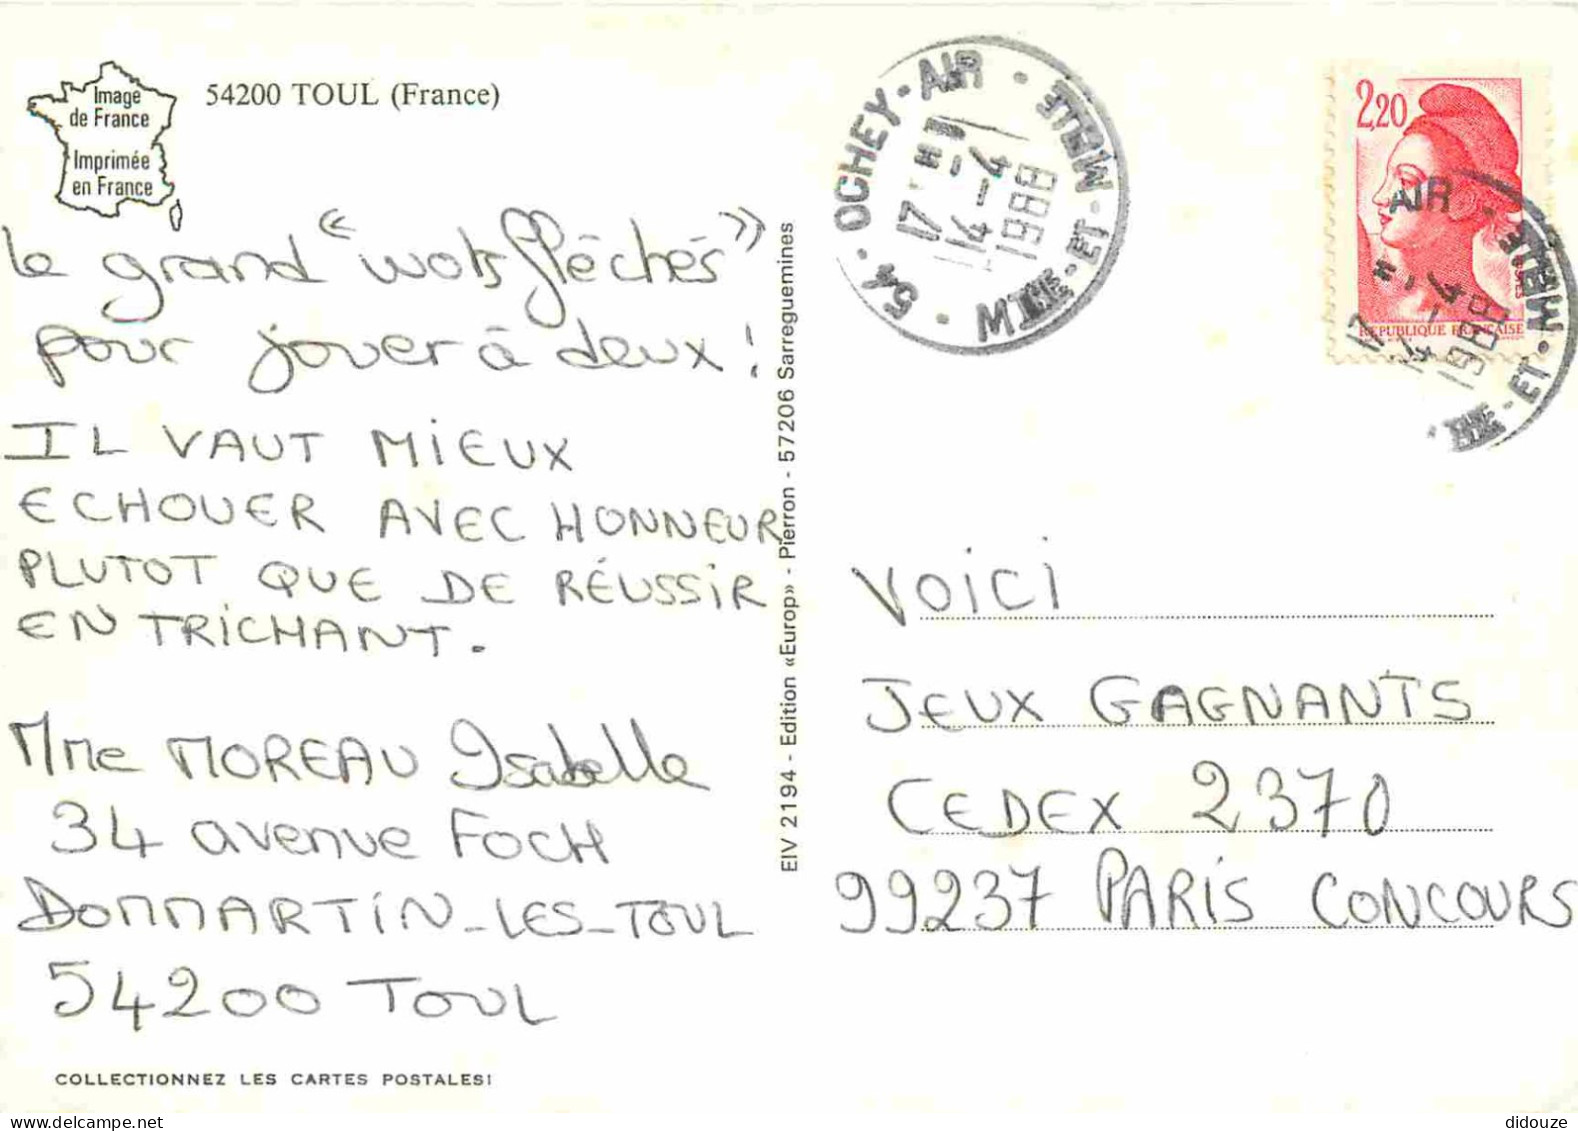 Image
de France
Imprimée
en France
54200 TOUL (France)
Le grand "mots flêchés"
pour jouer à deux !
IL VAUT MIEUX
ECHOUER AVEC HONNEUR
PLUTOT QUE DE RÉUSSIR
EN TRICHANT.
Mme MOREAU Isabelle
34 avenue FOCH
DOMMARTIN-LES-TOUL
54200 TOUL
COLLECTIONNEZ LES CARTES POSTALES!
EIV 2194 - Edition «Europ» - Pierron - 57206 Sarreguemines
54 - OCHEY-AIR - MBLE - ET - MTHE
17 H
14 - 4
1988
2,20
REPUBLIQUE FRANÇAISE
AIR
17 H
14 - 4
1988
ET - MBLE
VOICI
JEUX GAGNANTS
CEDEX 2370
99237 PARIS CONCOURS
didouze